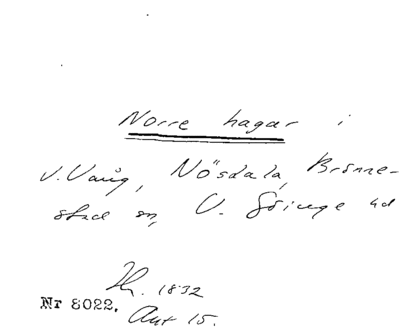 Norre hagar i
V. Vång, Nösdala, Brönne-
stad sn, V. Göinge hd
Hr. 1832
Nr 8022. Aut 15.